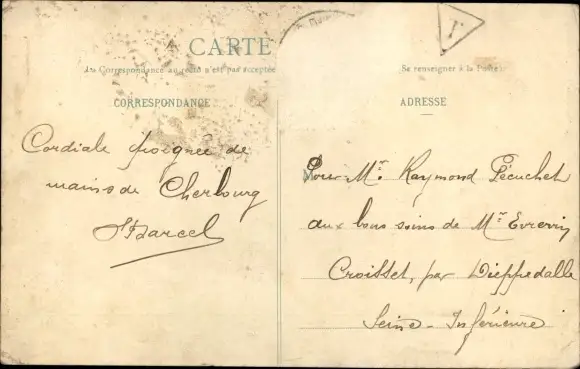 CARTE
La Correspondance au recto n'est pas acceptée
Se renseigner à la Poste
CORRESPONDANCE
ADRESSE
Cordiale poignée de
mains de Cherbourg
Marcel
Pour Mr. Raymond Pécuchet
aux bons soins de Mr
Croisset, par Dieppedalle
Seine-Inférieure